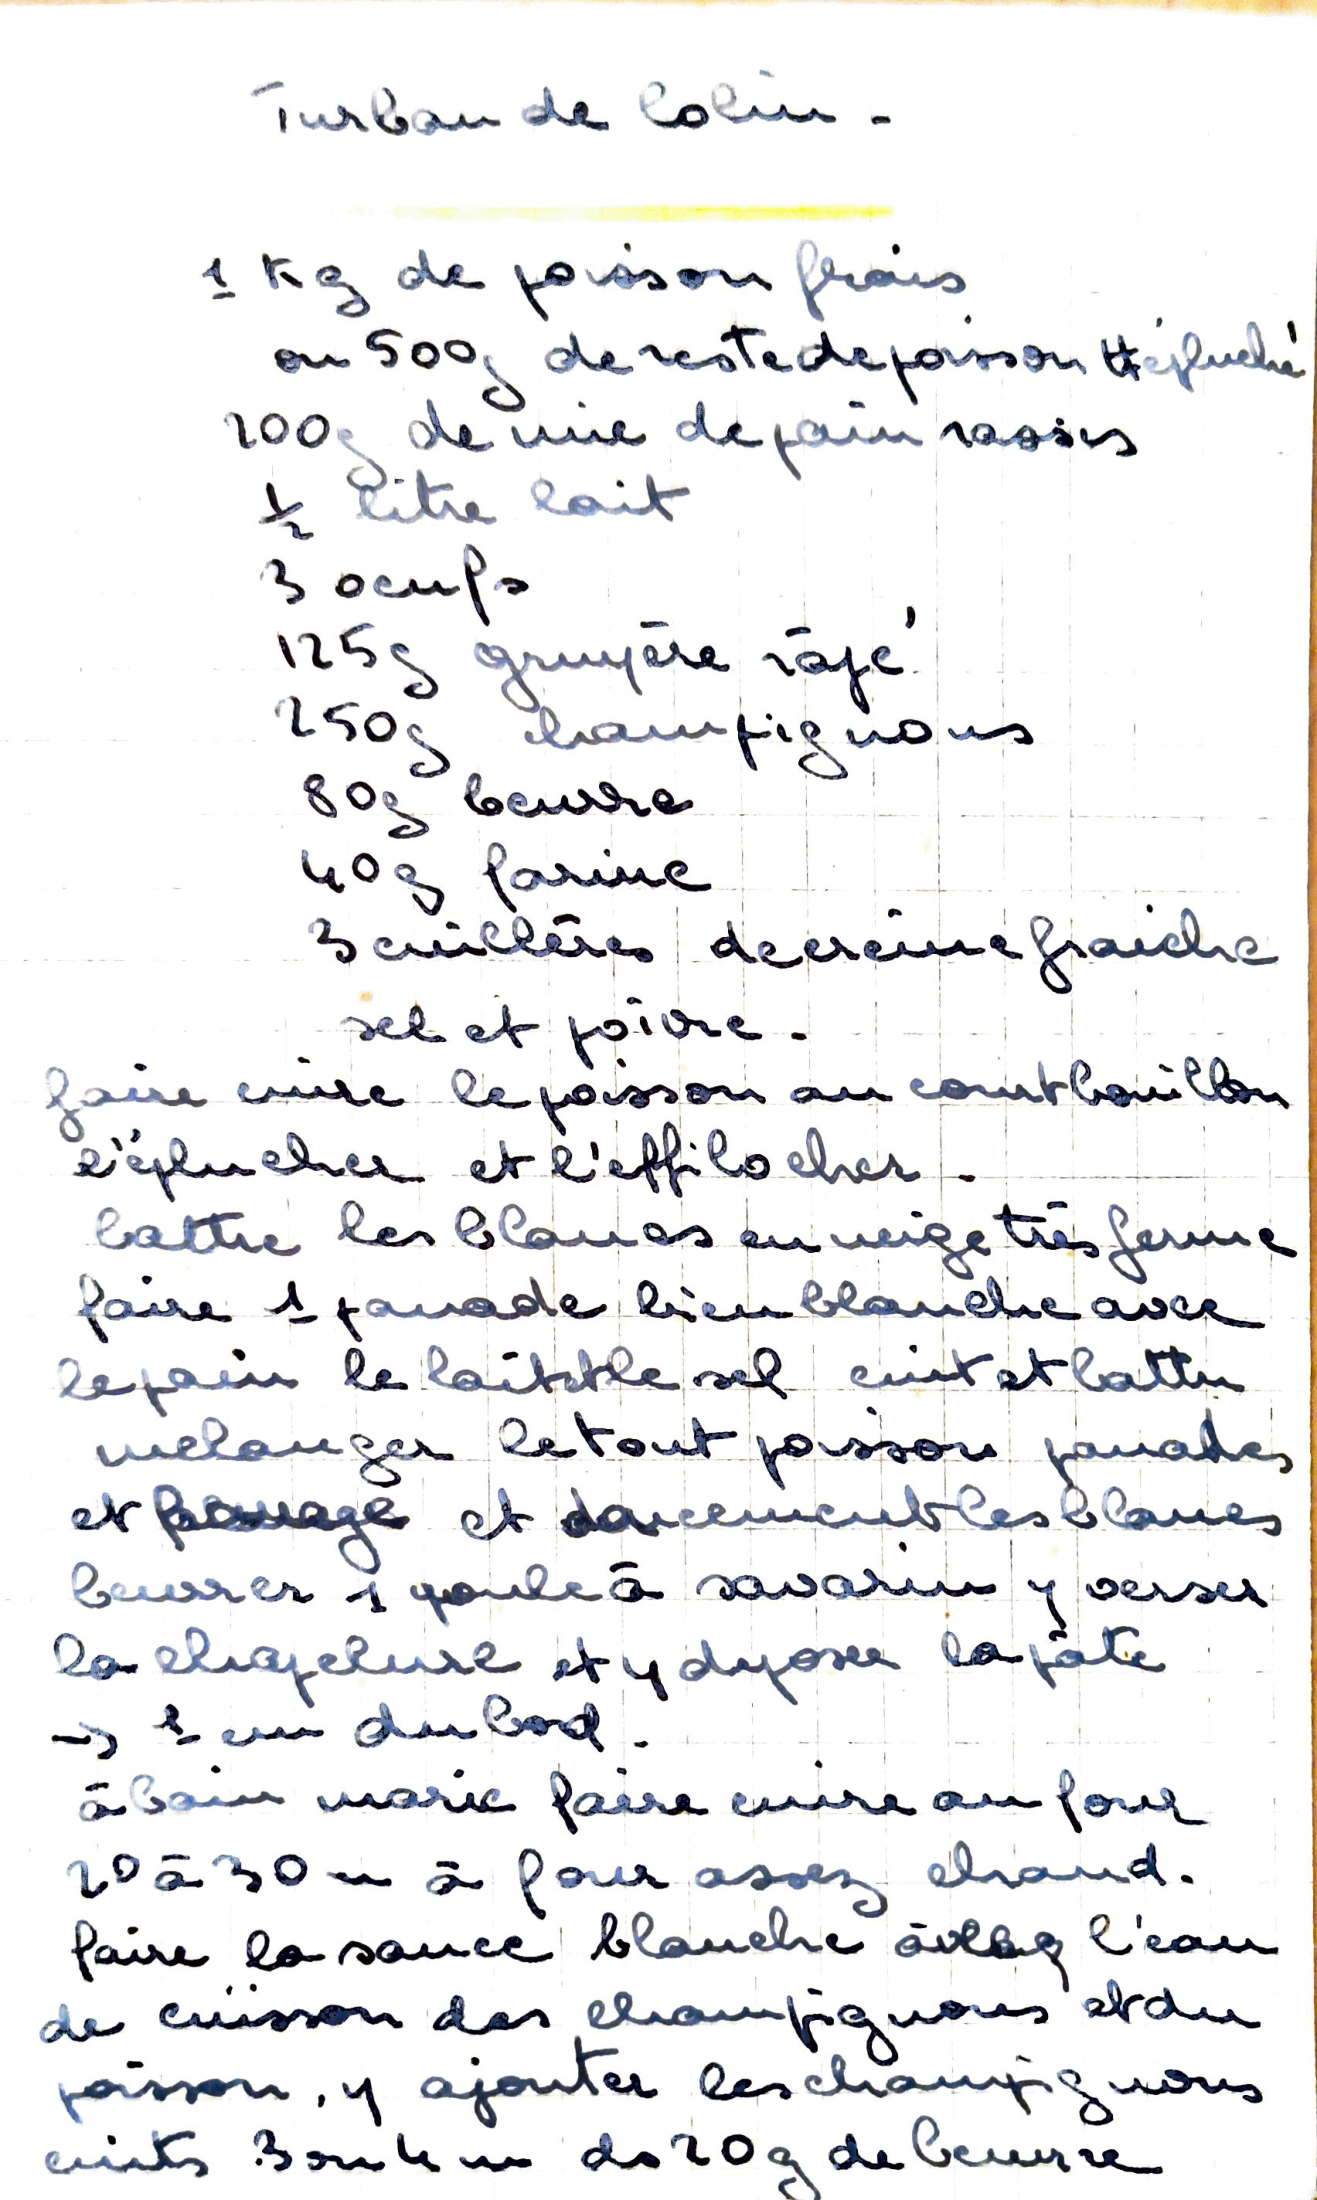 Turban de Colin -
1 Kg de poisson frais
ou 500g de reste de poisson épluché
200g de mie de pain rassis
1/2 litre lait
3 oeufs
125g gruyère râpé
250g champignons
80g beurre
40g farine
3 cuillères de crème fraiche
sel et poivre -
faire cuire le poisson au court bouillon
l'éplucher et l'effilocher -
battre les blancs en neige très ferme
faire 1 panade bien blanche avec
le pain le lait et le sel cuit et battu
mélanger le tout poisson panades
et fromage et doucement les blancs
beurrer 1 moule à savarin y verser
la chapelure et y déposer la pâte
→ 1 cm du bord -
à bain marie faire cuire au four
20 à 30 m à four assez chaud.
faire la sauce blanche l'eau
de cuisson des champignons et du
poisson, y ajouter les champignons
cuits 3 ou 4 m ds 20g de beurre